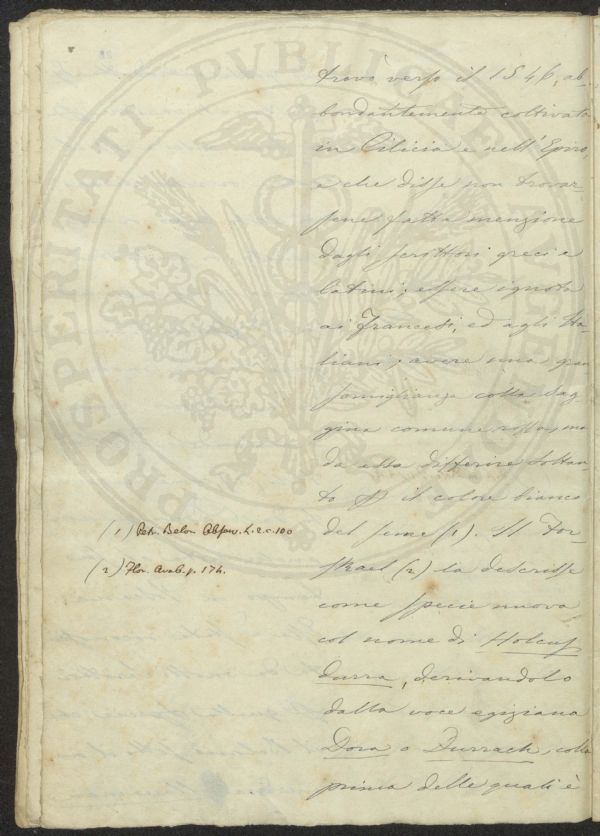 trovò verso il 1546, ab-
bondantemente coltivata
in Cilicia e nell'Epiro,
e che disse non trovar-
sene fatta menzione
dagli scrittori greci e
latini; essere ignota
ai Francesi, ed agli Ita-
liani; avere una gran
somiglianza colla Sag-
gina comune rossa, ma
da essa differire soltan-
to il colore bianco
del seme (1). Il For-
skael (2) la descrisse
come specie nuova
col nome di Holcus
durra, derivandolo
dalla voce egiziana
Dora o Durrach, colla
prima delle quali è
(1) Petr. Belon Observ. L. 2. c. 100
(2) Flor. Arab. p. 174.
PROSPERITATI PVBLICAE AVGENDAE